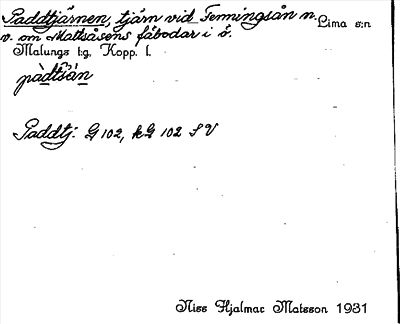 Paddtjärnen, tjärn vid Femmingsån n. Lima s:n
v. om Mattsåsens fäbodar i ö.
Malungs t:g. Kopp. l.
pàdtšän
Paddtj: G 102, kG 102 SV
Niss Hjalmar Matsson 1931